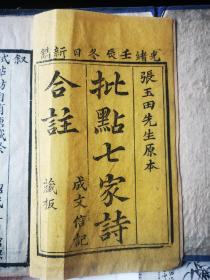 光緒壬辰冬日新鐫
張玉田先生原本
批點七家詩
合註
成文信記
藏板